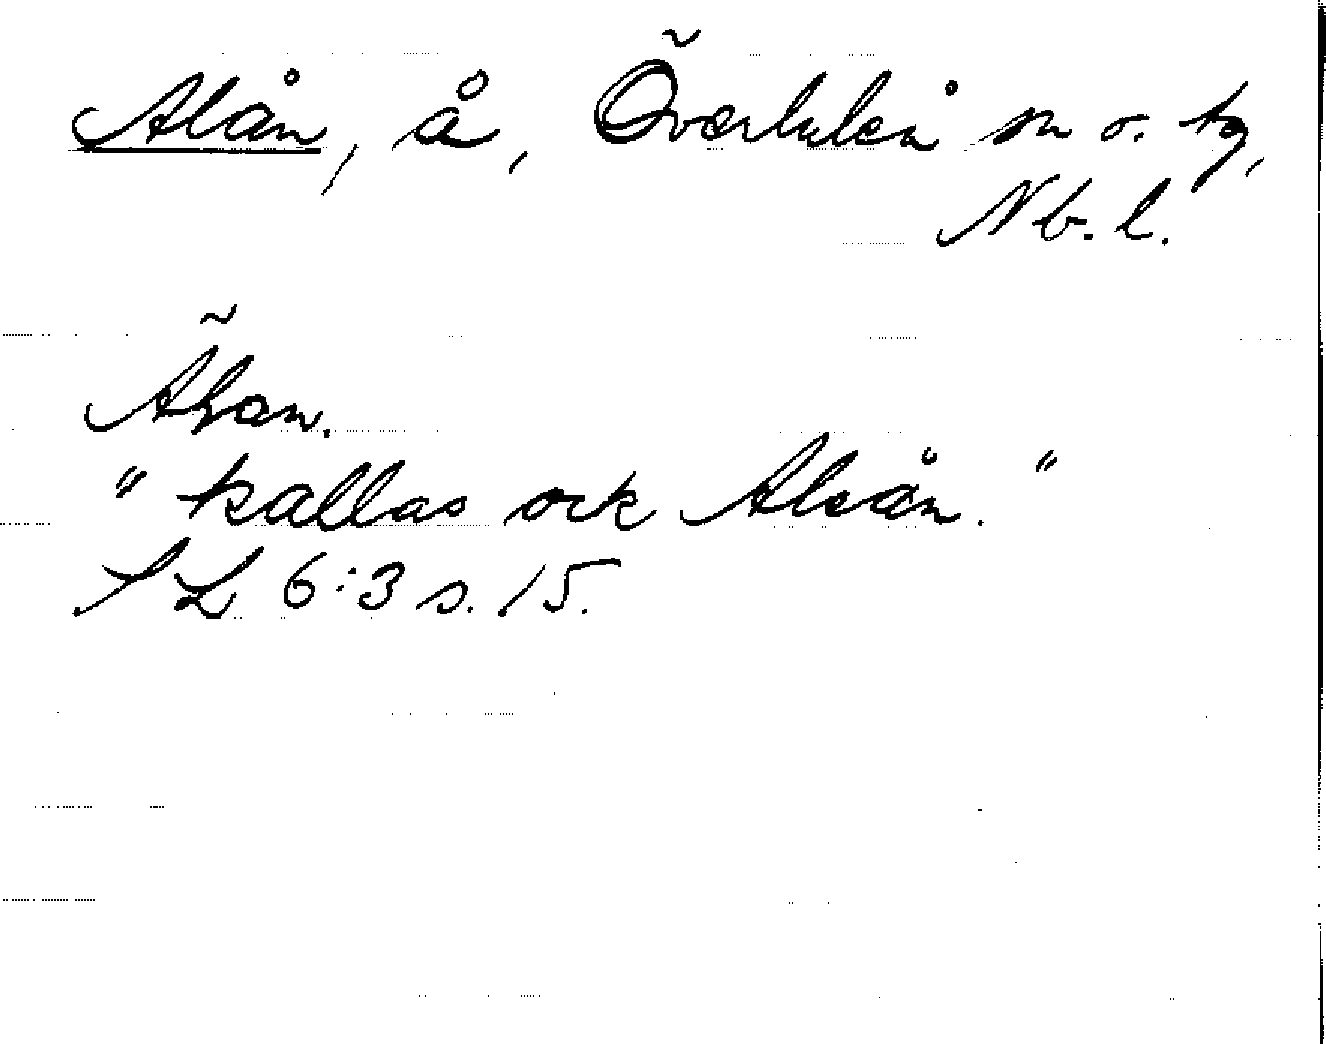 Alån, å, Överluleå sn o. tg,
Nb. l.
"kallas ock Aleån."
SL 6:3 s. 15.